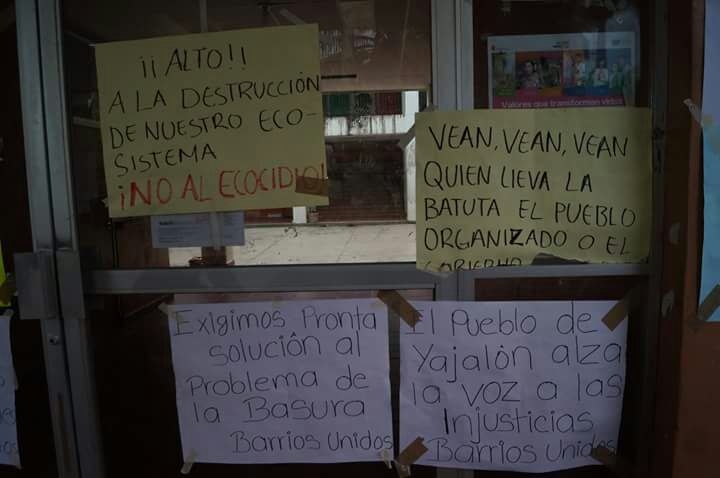 ¡¡ALTO!!
A LA DESTRUCCIÓN
DE NUESTRO ECO-
SISTEMA
¡NO AL ECOCIDIO!
Valores que transforman vidas
VEAN, VEAN, VEAN
QUIEN LLEVA LA
BATUTA EL PUEBLO
ORGANIZADO O EL
GOBIERNO
Exigimos Pronta
solución al
Problema de
la Basura
Barrios Unidos
El Pueblo de
Yajalón alza
la voz a las
Injusticias
Barrios Unidos